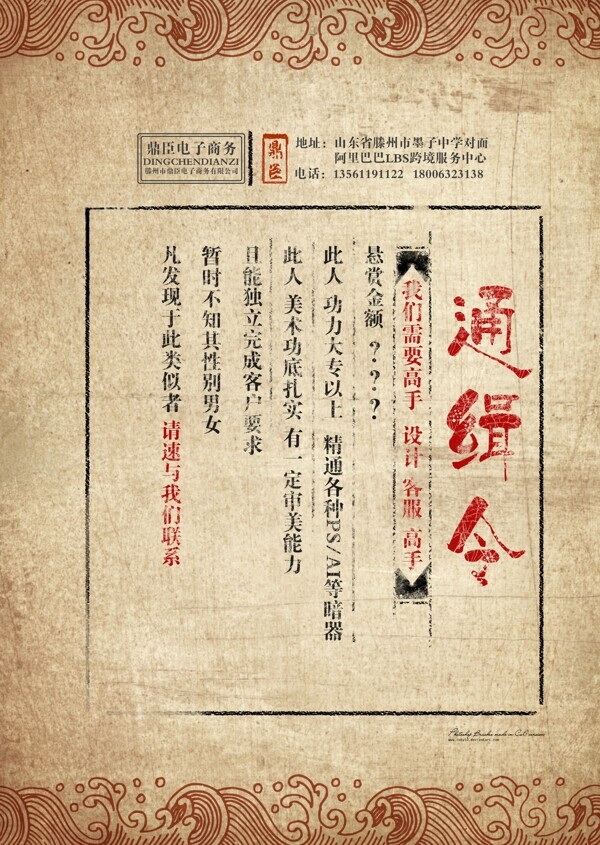 鼎臣电子商务
DINGCHENDIANZI
滕州市鼎臣电子商务有限公司
鼎臣
地址：山东省滕州市墨子中学对面
阿里巴巴LBS跨境服务中心
电话：13561191122 18006323138
通缉令
我们需要高手 设计 客服 高手
悬赏金额 ？？？
此人 功力大专以上 精通各种PS/AI等暗器
此人 美术功底扎实 有一定审美能力
且能独立完成客户要求
暂时不知其性别男女
凡发现于此类似者 请速与我们联系